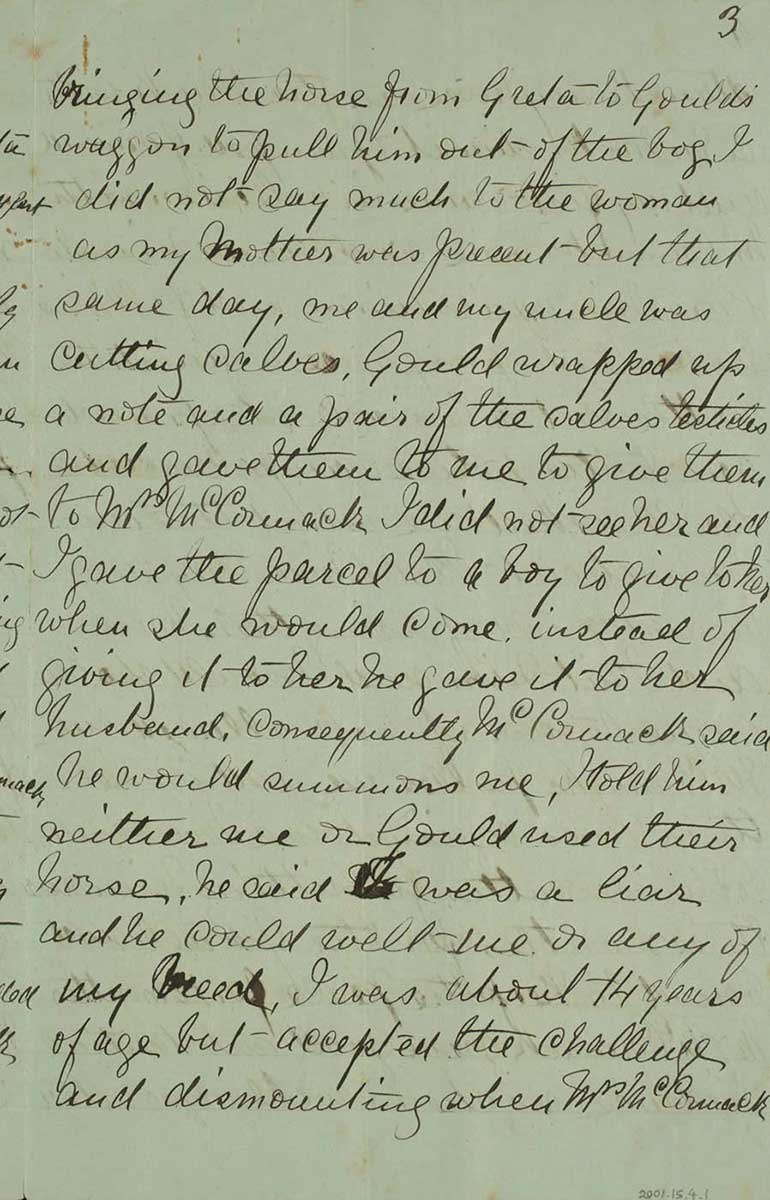 3
bringing the horse from Greta to Gould's
waggon to pull him out of the bog, I
did not say much to the woman
as my Mother was present but that
same day, me and my uncle was
cutting calves, Gould wrapped up
a note and a pair of the calves testicles
and gave them to me to give them
to Mrs McCormack I did not see her and
I gave the parcel to a boy to give to her
when she would come. instead of
giving it to her he gave it to her
husband, consequently McCormack said
he would summons me, I told him
neither me or Gould used their
horse, he said I was a liar
and he could welt me or any of
my breed, I was about 14 years
of age but accepted the challenge
and dismounting when Mrs McCormack
2001.15.4.1